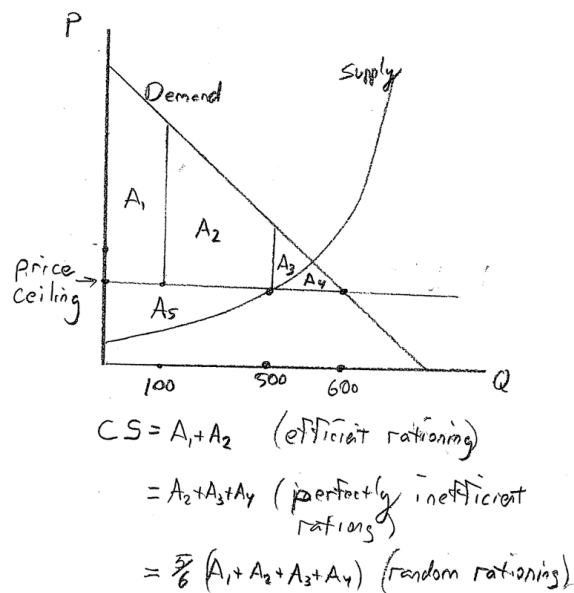 P
Supply
Demand
A₁
A₂
A₃
A₄
price
ceiling
A₅
100
500
600
Q
CS = A₁ + A₂ (efficient rationing)
= A₂ + A₃ + A₄ (perfectly inefficient
rationg)
= 5/6 (A₁ + A₂ + A₃ + A₄) (random rationing)